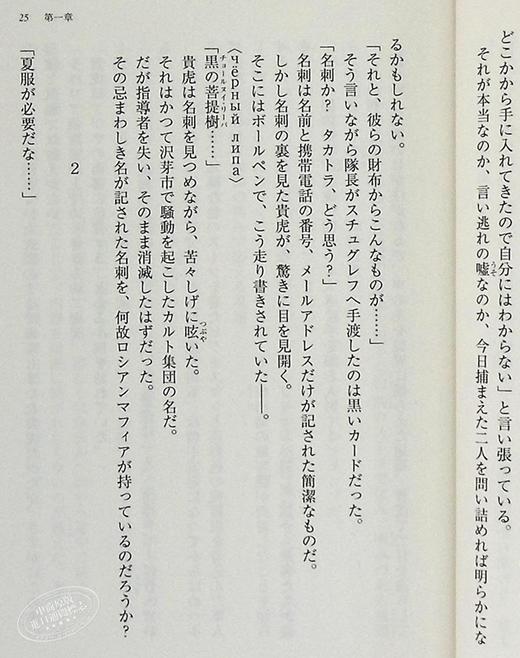 どこかから手に入れてきたので自分にはわからない」と言い張っている。
それが本当なのか、言い逃れの嘘なのか、今日捕まえた二人を問い詰めれば明らかにな
うそ
25 第一章
るかもしれない。
「それと、彼らの財布からこんなものが……」
そう言いながら隊長がスチュグレフへ手渡したのは黒いカードだった。
「名刺か？ タカトラ、どう思う？」
名刺は名前と携帯電話の番号、メールアドレスだけが記された簡潔なものだ。
しかし名刺の裏を見た貴虎が、驚きに目を見開く。
そこにはボールペンで、こう走り書きされていた――。
〈чёрный липа〉
「黒の菩提樹……」
チョールヌイ・リーパ
貴虎は名刺を見つめながら、苦々しげに呟いた。
つぶや
それはかつて沢芽市で騒動を起こしたカルト集団の名だ。
だが指導者を失い、そのまま消滅したはずだった。
その忌まわしき名が記された名刺を、何故ロシアンマフィアが持っているのだろうか？
2
「夏服が必要だな……」